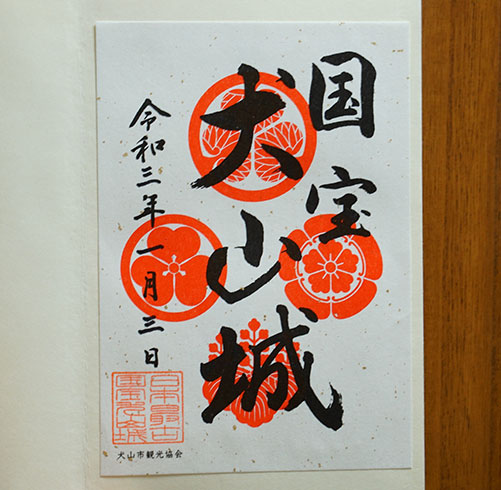 国宝
犬山城
令和三年一月三日
日本最古
犬山市観光協会